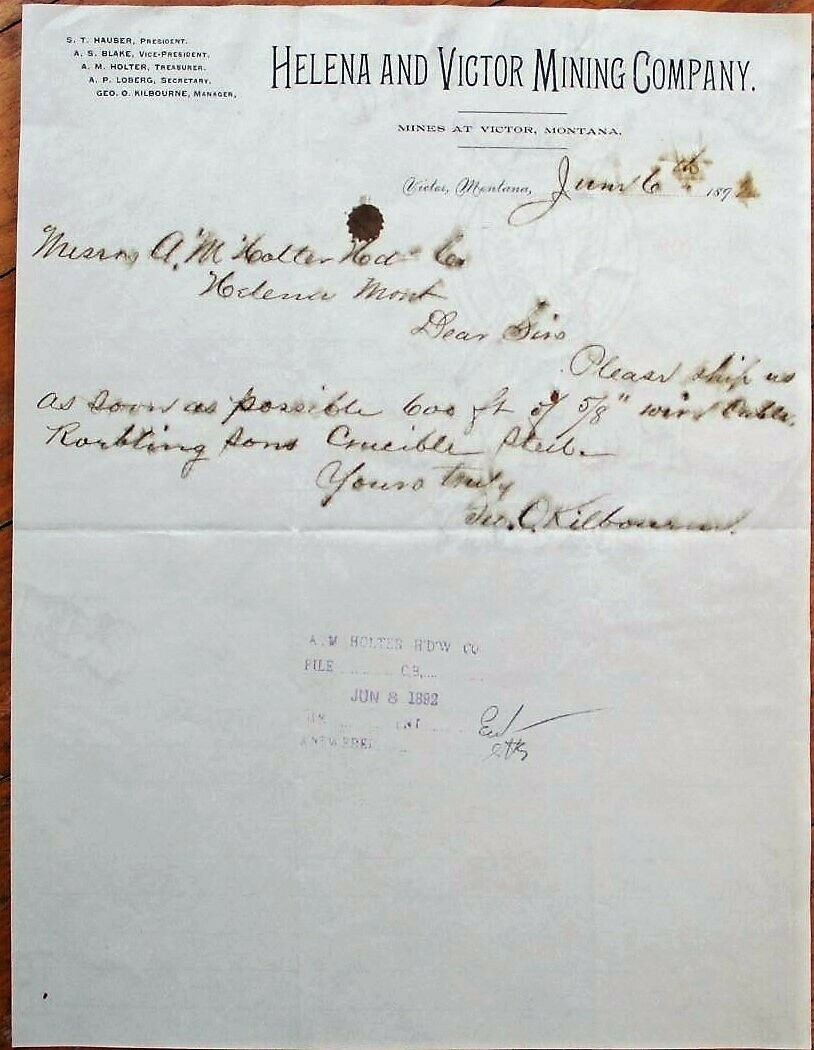 S. T. HAUSER, PRESIDENT.
A. S. BLAKE, VICE-PRESIDENT.
A. M. HOLTER, TREASURER.
A. P. LOBERG, SECRETARY.
GEO. O. KILBOURNE, MANAGER,
HELENA AND VICTOR MINING COMPANY.
MINES AT VICTOR, MONTANA.
Victor, Montana, June 6th 1892
Messrs A. M. Holter Hd Co
Helena Mont
Dear Sirs
Please ship us
as soon as possible 600 ft of 5/8" wire Cable.
Roebling Sons Crucible Steel
Yours truly
Geo. O. Kilbourne.
A. M HOLTER H'D'W CO
FILE C.B.
JUN 8 1892
ENT
ANSWERED